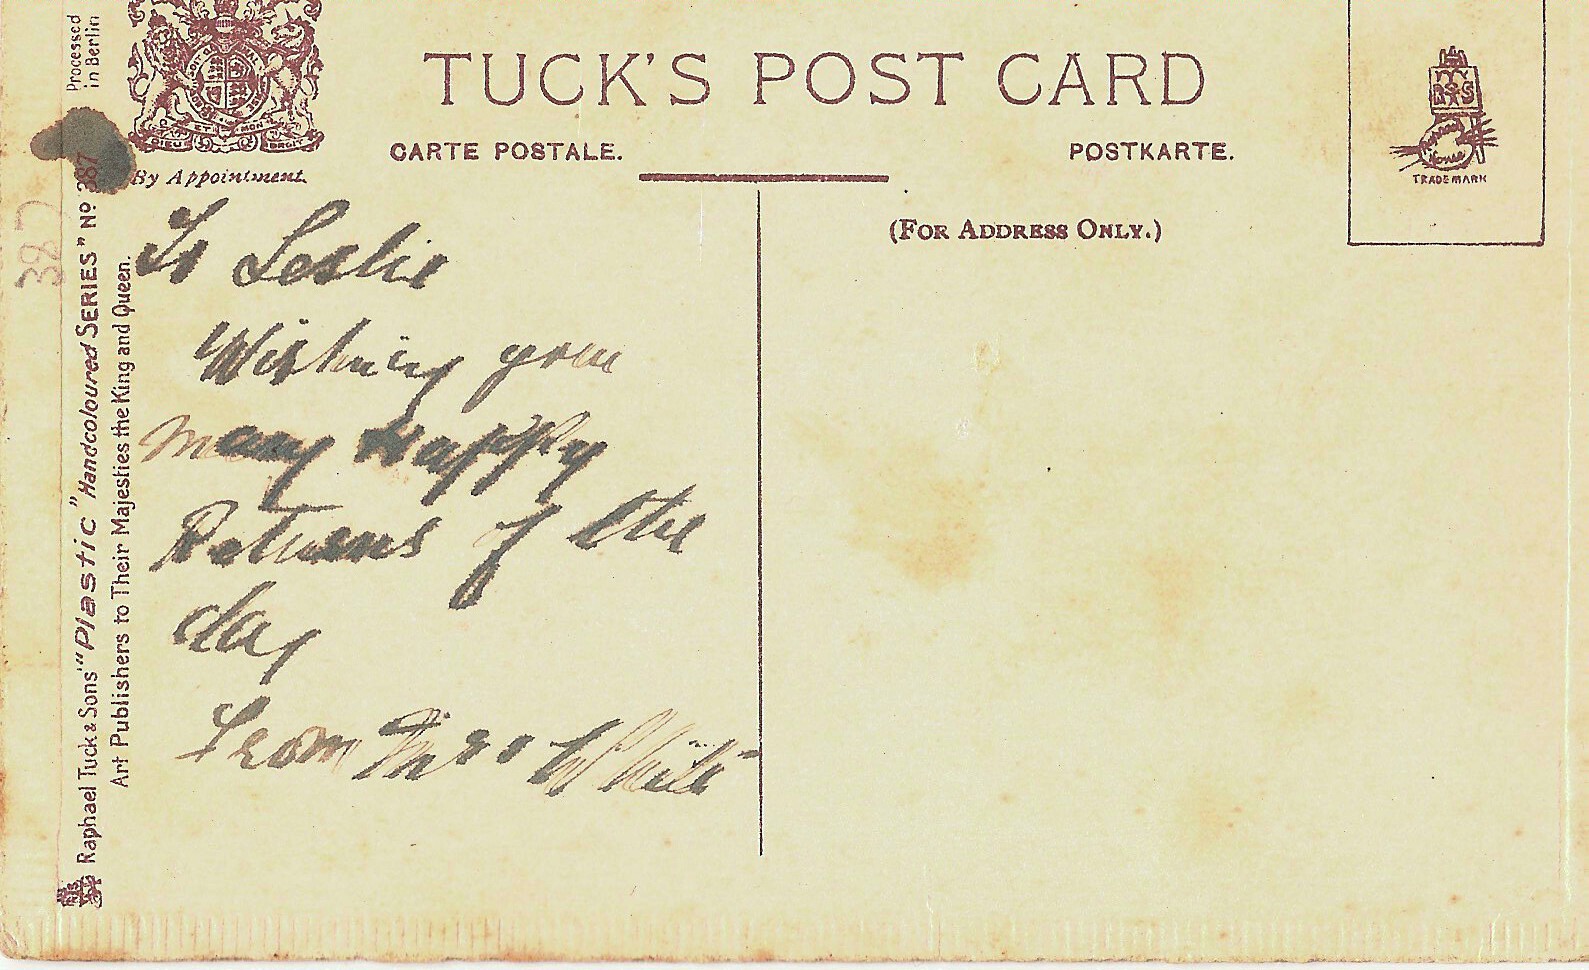 TUCK'S POST CARD
CARTE POSTALE.
POSTKARTE.
(FOR ADDRESS ONLY.)
TRADE MARK
DIEU ET MON DROIT
By Appointment.
Processed
in Berlin
Raphael Tuck & Sons' "Plastic" "Handcoloured SERIES" Nº 387
Art Publishers to Their Majesties the King and Queen.
387
To Leslie
Wishing you
many Happy
Returns of the
day
From Mrs White